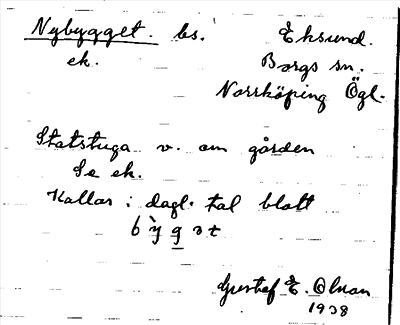 Nybygget. bs. Eksund.
ek. Borgs sn.
Norrköping Ögl.
Statstuga v. om gården
Se ek.
Kallas i dagl. tal blott
bỳgət
Gustaf E. Olman
1938